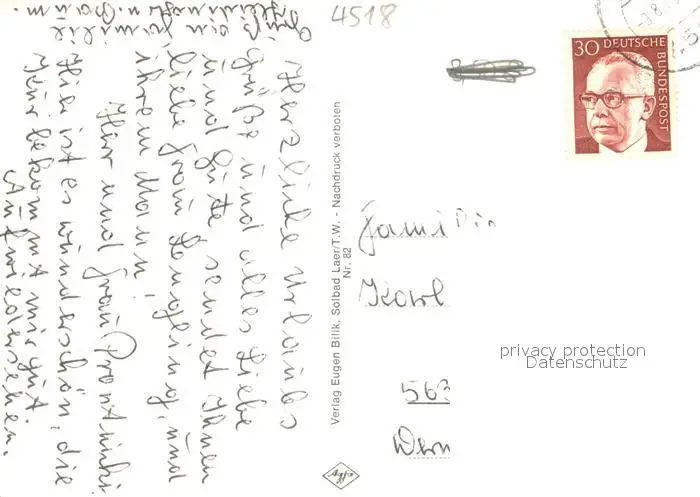 4518
30 DEUTSCHE
BUNDESPOST
Herzliche Urlaubs
grüße und alles Liebe
und Gute sendet Ihnen
liebe Frau und
ihrem Mann,
Herr und Frau
Hier ist es wunderschön, die
Kur bekommt mir gut
Auf wiedersehen.
Gruß an Familie
Verlag Eugen Bilik, Solbad Laer/T.W. - Nachdruck verboten
Nr. 82
Agfa
Famili
Karl
563
privacy protection
Datenschutz